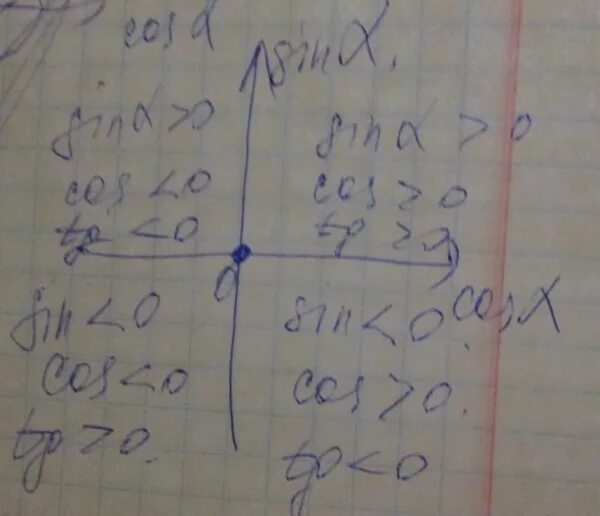 cos α
sin α.
sin α > 0
cos < 0
tg < 0
sin α > 0
cos > 0
tg > 0
0
cos α
sin < 0
cos < 0
tg > 0.
sin < 0
cos > 0.
tg < 0